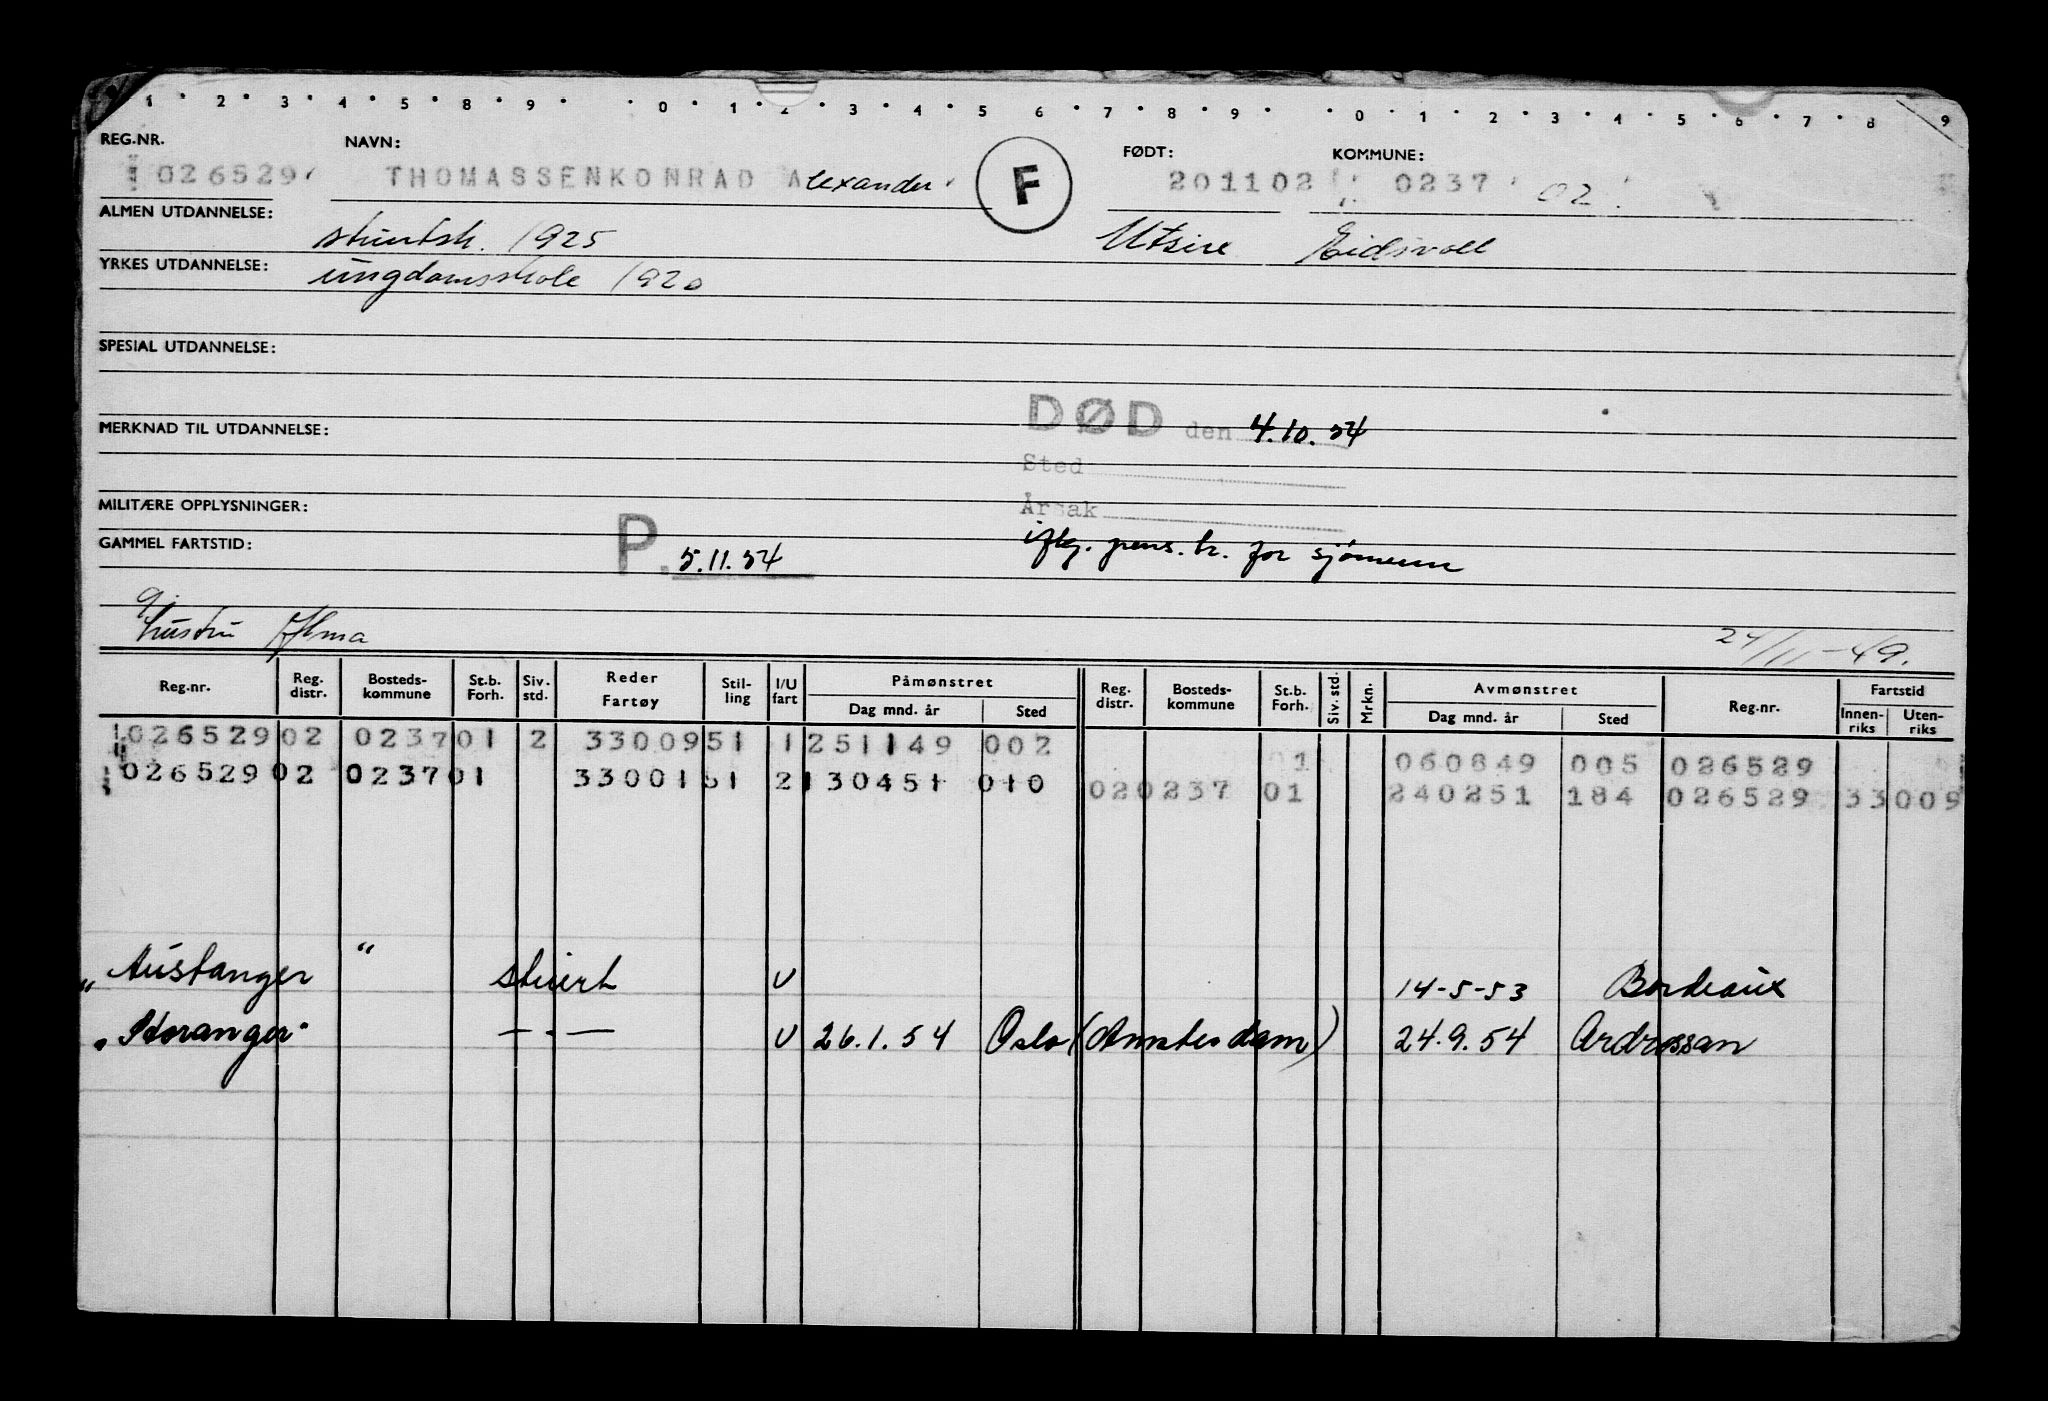 1 · 2 · 3 · 4 · 5 · 8 · 9 · · 0 · 1 · 2 · 3 · 4 · 5 · 6 · 7 · 8 · 9 · · 0 · 1 · 2 · 3 · 4 · 5 · 6 · 7 · 8 · 9
REG.NR. NAVN: FØDT: KOMMUNE:
026529 THOMASSENKONRAD Alexander F 201102 0237 02
ALMEN UTDANNELSE: stuertsk. 1925 Utsire Eidsvoll
YRKES UTDANNELSE: ungdomsskole 1920
SPESIAL UTDANNELSE:
MERKNAD TIL UTDANNELSE: DØD den 4.10.54
Sted
MILITÆRE OPPLYSNINGER: Årsak
GAMMEL FARTSTID: P. 5.11.54 iflg. pens.tr. for sjömenn
g.
hustru Alma 24/11-49.
Reg.nr. Reg. distr. Bosteds-kommune St.b. Forh. Siv. std. Reder Fartøy Stil-ling I/U fart Påmønstret Dag mnd. år Sted Reg. distr. Bosteds-kommune St.b. Forh. Siv. std. Mrkn. Avmønstret Dag mnd. år Sted Reg.nr. Fartstid Innen-riks Uten-riks
026529 02 0237 01 2 33009 51 1 251149 002 01 060849 005 026529
026529 02 0237 01 33001 51 2 130451 010 020237 01 240251 184 026529 33 009
"Austanger" stuert U 14-5-53 Bordeaux
"Storanger" —·— U 26.1.54 Oslo (Amsterdam) 24.9.54 Ardrossan